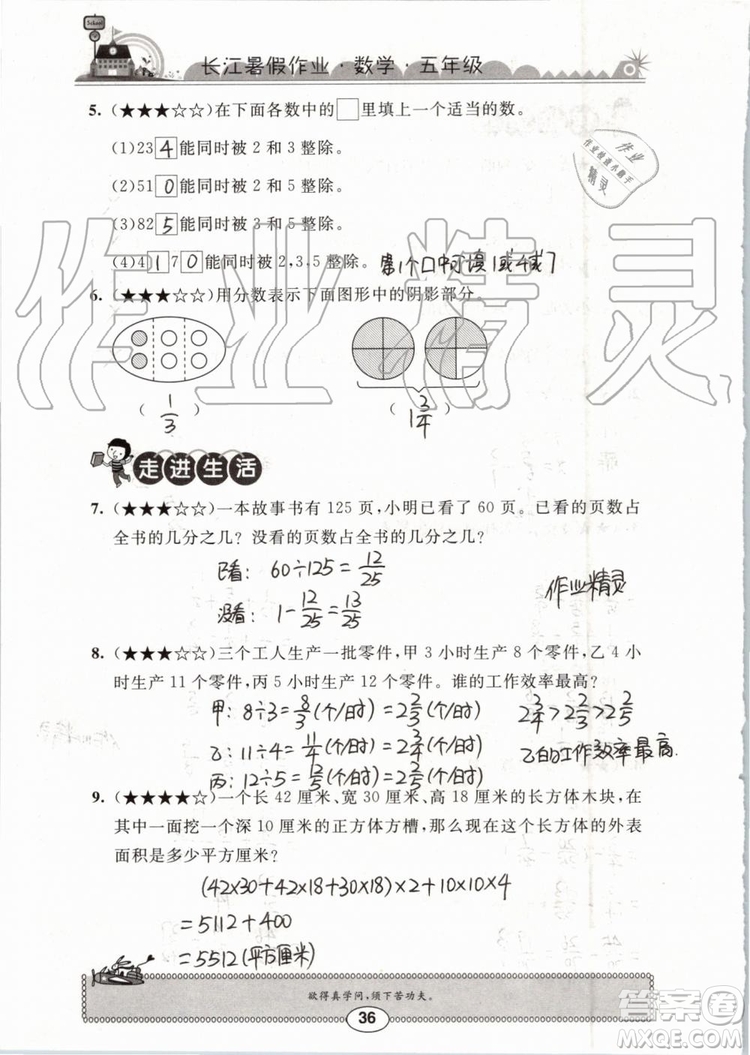 School
长江暑假作业·数学·五年级
5. (★★★☆☆)在下面各数中的□里填上一个适当的数。
(1)23 4 能同时被 2 和 3 整除。
(2)51 0 能同时被 2 和 5 整除。
(3)82 5 能同时被 3 和 5 整除。
(4)4 1 7 0 能同时被 2,3,5 整除。 第1个口中可填1或4或7
作业
作业快速小助手
精灵
6. (★★★☆☆)用分数表示下面图形中的阴影部分。
( 1/3 ) ( 1 3/4 )
作业精灵
走进生活
7. (★★★☆☆)一本故事书有 125 页,小明已看了 60 页。已看的页数占
全书的几分之几?没看的页数占全书的几分之几?
已看: 60÷125=12/25
作业精灵
没看: 1-12/25=13/25
8. (★★★☆☆)三个工人生产一批零件,甲 3 小时生产 8 个零件,乙 4 小
时生产 11 个零件,丙 5 小时生产 12 个零件。谁的工作效率最高?
甲: 8÷3=8/3(个/时)=2 2/3(个/时) 2 3/4>2 2/3>2 2/5
乙: 11÷4=11/4(个/时)=2 3/4(个/时) 乙的工作效率最高.
丙: 12÷5=12/5(个/时)=2 2/5(个/时)
9. (★★★★☆)一个长 42 厘米、宽 30 厘米、高 18 厘米的长方体木块,在
其中一面挖一个深 10 厘米的正方体方槽,那么现在这个长方体的外表
面积是多少平方厘米?
(42×30+42×18+30×18)×2+10×10×4
=5112+400
=5512(平方厘米)
欲得真学问,须下苦功夫。
36
答案圈
MXQE.COM